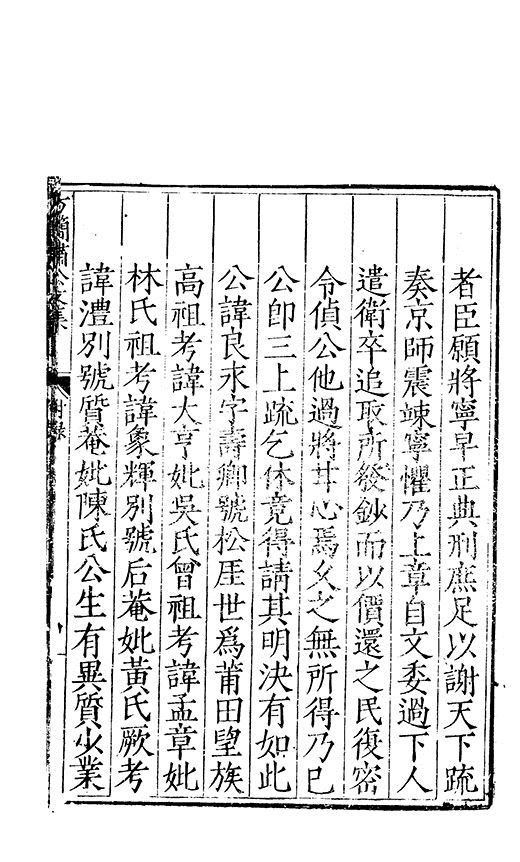 者臣願將寧早正典刑庶足以謝天下䟽
奏京師震竦寧懼乃上章自文委過下人
遣衛卒追取所發鈔而以價還之民復密
令偵公他過將甘心焉久之無所得乃已
公卽三上疏乞休竟得請其明決有如此
公諱良永字壽卿號松厓世爲莆田望族
高祖考諱大亨妣吳氏曾祖考諱孟章妣
林氏祖考諱象輝別號后菴妣黃氏厥考
諱澧別號質菴妣陳氏公生有異質少業
方簡肅公文集
附錄